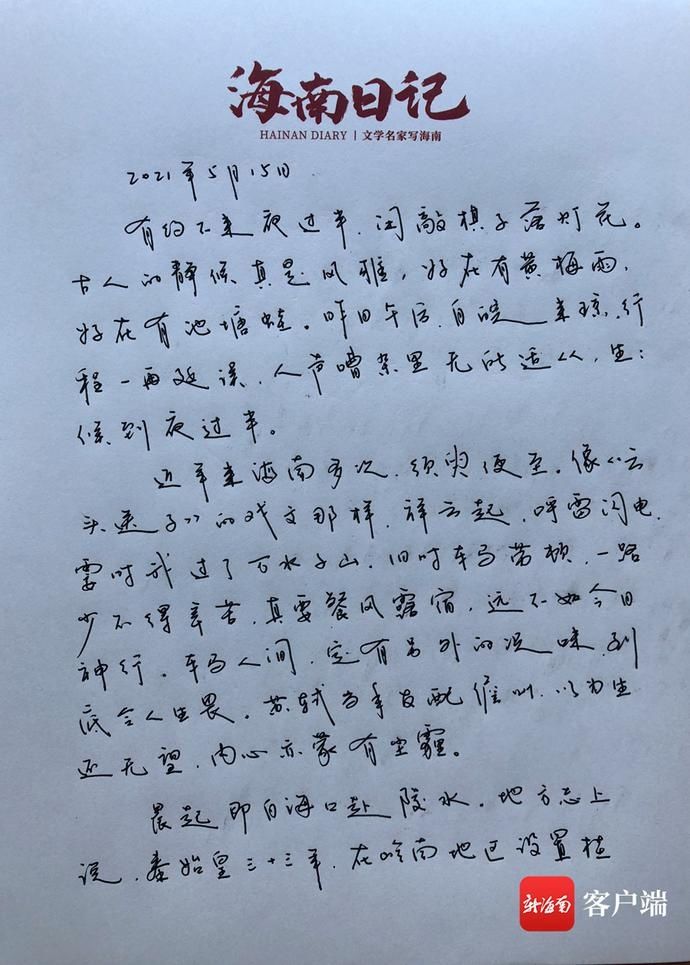 海南日记
HAINAN DIARY | 文学名家写海南
2021年5月15日
有约不来夜过半，闲敲棋子落灯花。
古人的静候真是风雅，好在有黄梅雨，
好在有池塘蛙。昨日午后，自皖来琼，行
程一再延误，人声嘈杂里无所适从，生生
候到夜过半。
近年来海南多次，须臾便至。像《云
头送子》的戏文那样，祥云起，呼雷闪电，
霎时我过了万水千山。旧时车马劳顿，一路
少不得辛苦，真要餐风露宿，远不如今日
神行。车马人间，定有另外的况味，到
底令人生畏。苏轼当年发配儋州，以为生
还无望，内心亦蒙有尘霾。
晨起，即自海口赴陵水。地方志上
说，秦始皇三十三年，在岭南地区设置桂
新海南 客户端